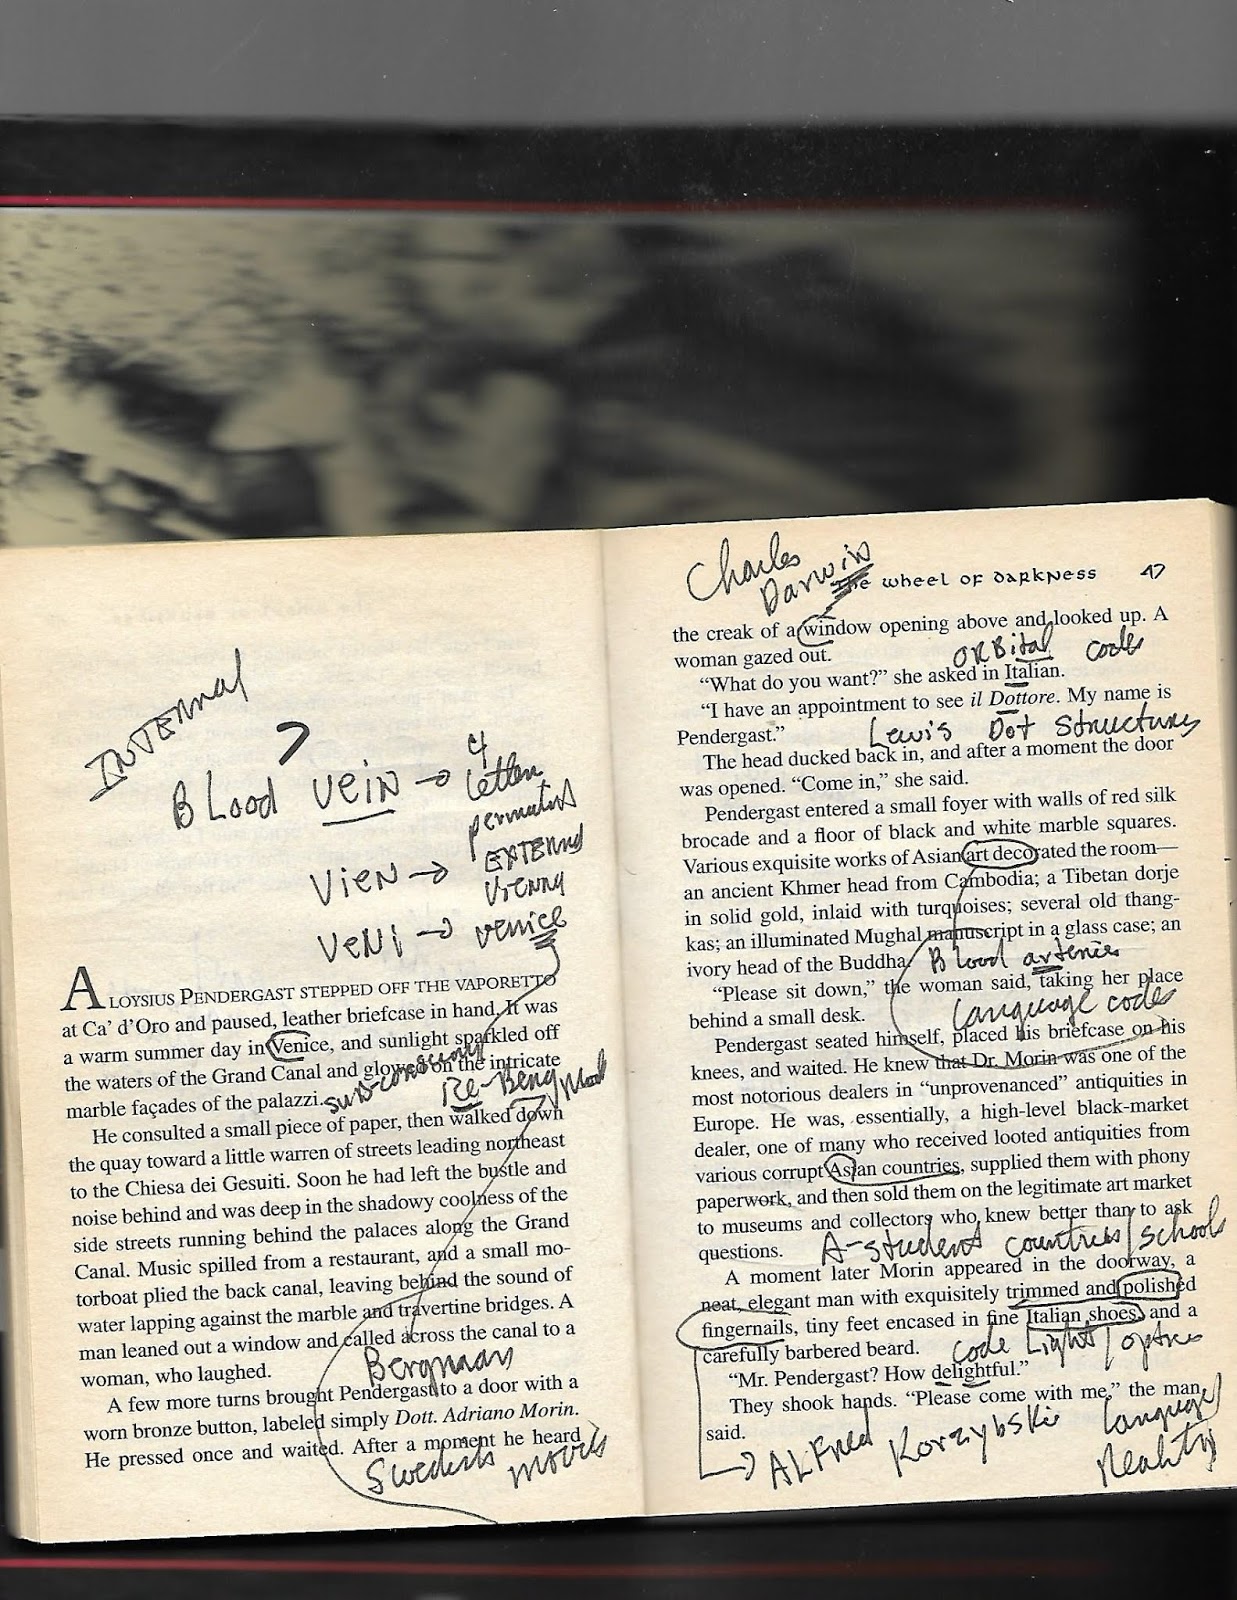 INTERNAL
Blood vein → 4
letter
VieN → EXTERNAL
Vienna
VeNi → venice
ALOYSIUS PENDERGAST STEPPED OFF THE VAPORETTO
at Ca' d'Oro and paused, leather briefcase in hand. It was
a warm summer day in Venice, and sunlight sparkled off
the waters of the Grand Canal and glowed on the intricate
marble façades of the palazzi.
He consulted a small piece of paper, then walked down
the quay toward a little warren of streets leading northeast
to the Chiesa dei Gesuiti. Soon he had left the bustle and
noise behind and was deep in the shadowy coolness of the
side streets running behind the palaces along the Grand
Canal. Music spilled from a restaurant, and a small mo-
torboat plied the back canal, leaving behind the sound of
water lapping against the marble and travertine bridges. A
man leaned out a window and called across the canal to a
woman, who laughed.
Bergman
A few more turns brought Pendergast to a door with a
worn bronze button, labeled simply Dott. Adriano Morin.
He pressed once and waited. After a moment he heard
Swedish movies
Charles
Darwin
THE WHEEL OF DARKNESS 47
the creak of a window opening above and looked up. A
woman gazed out.
ORBital code
"What do you want?" she asked in Italian.
"I have an appointment to see il Dottore. My name is
Pendergast."
Lewis Dot Structures
The head ducked back in, and after a moment the door
was opened. "Come in," she said.
Pendergast entered a small foyer with walls of red silk
brocade and a floor of black and white marble squares.
Various exquisite works of Asian art decorated the room—
an ancient Khmer head from Cambodia; a Tibetan dorje
in solid gold, inlaid with turquoises; several old thang-
kas; an illuminated Mughal manuscript in a glass case; an
ivory head of the Buddha.
Blood arteries
"Please sit down," the woman said, taking her place
behind a small desk.
Language codes
Pendergast seated himself, placed his briefcase on his
knees, and waited. He knew that Dr. Morin was one of the
most notorious dealers in "unprovenanced" antiquities in
Europe. He was, essentially, a high-level black-market
dealer, one of many who received looted antiquities from
various corrupt Asian countries, supplied them with phony
paperwork, and then sold them on the legitimate art market
to museums and collectors who knew better than to ask
questions.
A-student countries/schools
A moment later Morin appeared in the doorway, a
neat, elegant man with exquisitely trimmed and polished
fingernails, tiny feet encased in fine Italian shoes, and a
carefully barbered beard.
code Light/optics
"Mr. Pendergast? How delightful."
They shook hands. "Please come with me," the man
said.
→ ALFred Korzybski Language/
Reality